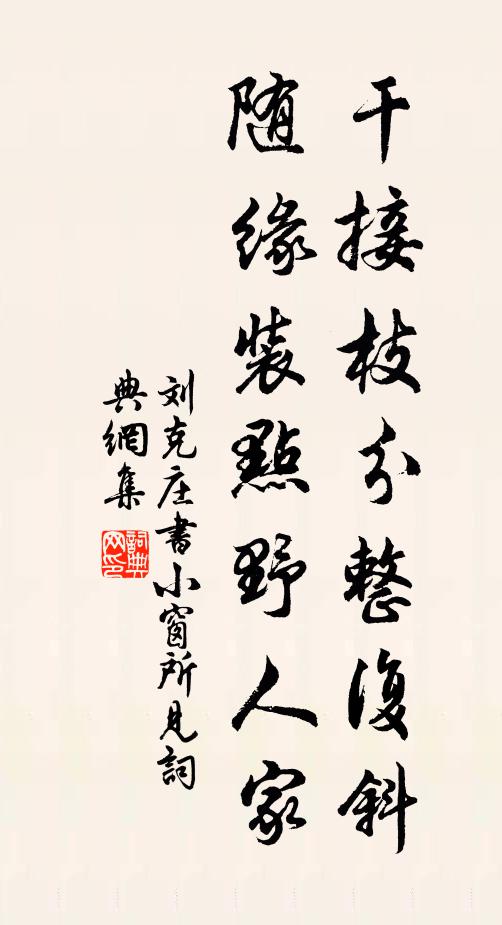 干接枝分整復斜
随缘装點野人家
刘克庄書小窗所見詞
典網集
詞典網印